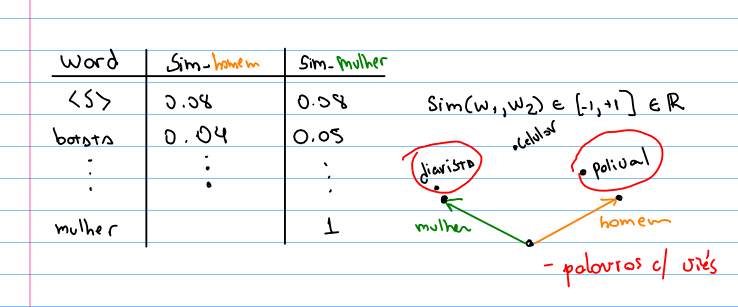 Word Sim-homem Sim-mulher
<S> 0.08 0.08
batata 0.04 0.05
mulher 1
Sim(W₁,W₂) ∈ [-1,+1] ∈ ℝ
celular
diarista
policial
mulher
homem
- palavras c/ viés